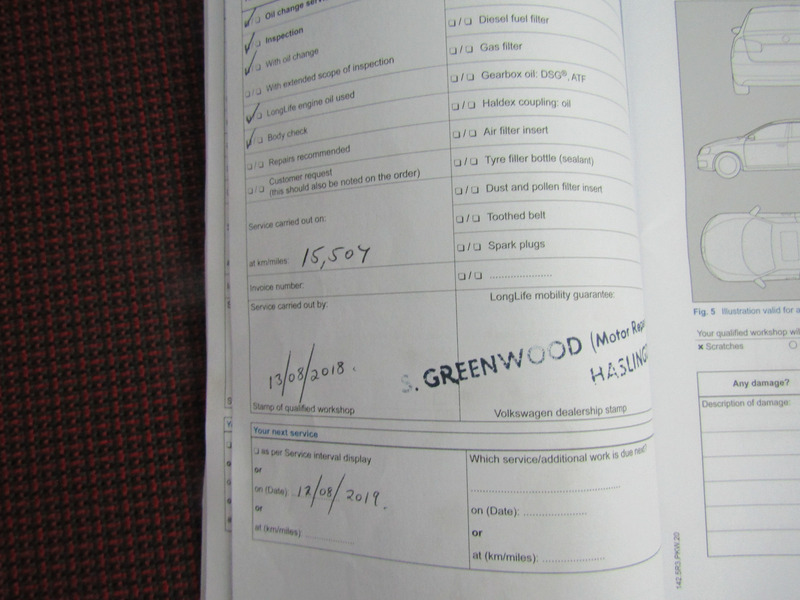 Oil change
Inspection
With oil change
With extended scope of inspection
LongLife engine oil used
Body check
Repairs recommended
Customer request
(this should also be noted on the order)
Service carried out on:
at km/miles: 15,504
Invoice number:
Service carried out by:
13/08/2018.
Stamp of qualified workshop
/ Diesel fuel filter
/ Gas filter
/ Gearbox oil: DSG®, ATF
/ Haldex coupling: oil
/ Air filter insert
/ Tyre filler bottle (sealant)
/ Dust and pollen filter insert
/ Toothed belt
/ Spark plugs
/ .....................
LongLife mobility guarantee:
S. GREENWOOD (Motor
Volkswagen dealership stamp
Your next service
as per Service interval display
or
on (Date): 12/08/2019.
or
at (km/miles):
Which service/additional work is due next?
on (Date): .....................
or
at (km/miles): .....................
Fig. 5 Illustration valid for
Your qualified workshop
× Scratches
Any damage?
Description of damage:
142.5R3.PKW.20